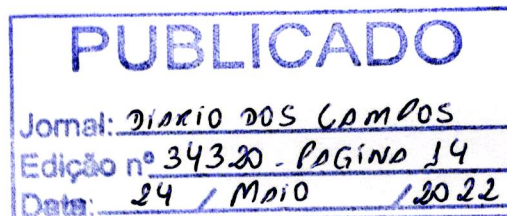 PUBLICADO
Jornal: DIARIO DOS CAMPOS
Edição nº 34320 - PAGINA 14
Data: 24 / MAIO / 2022